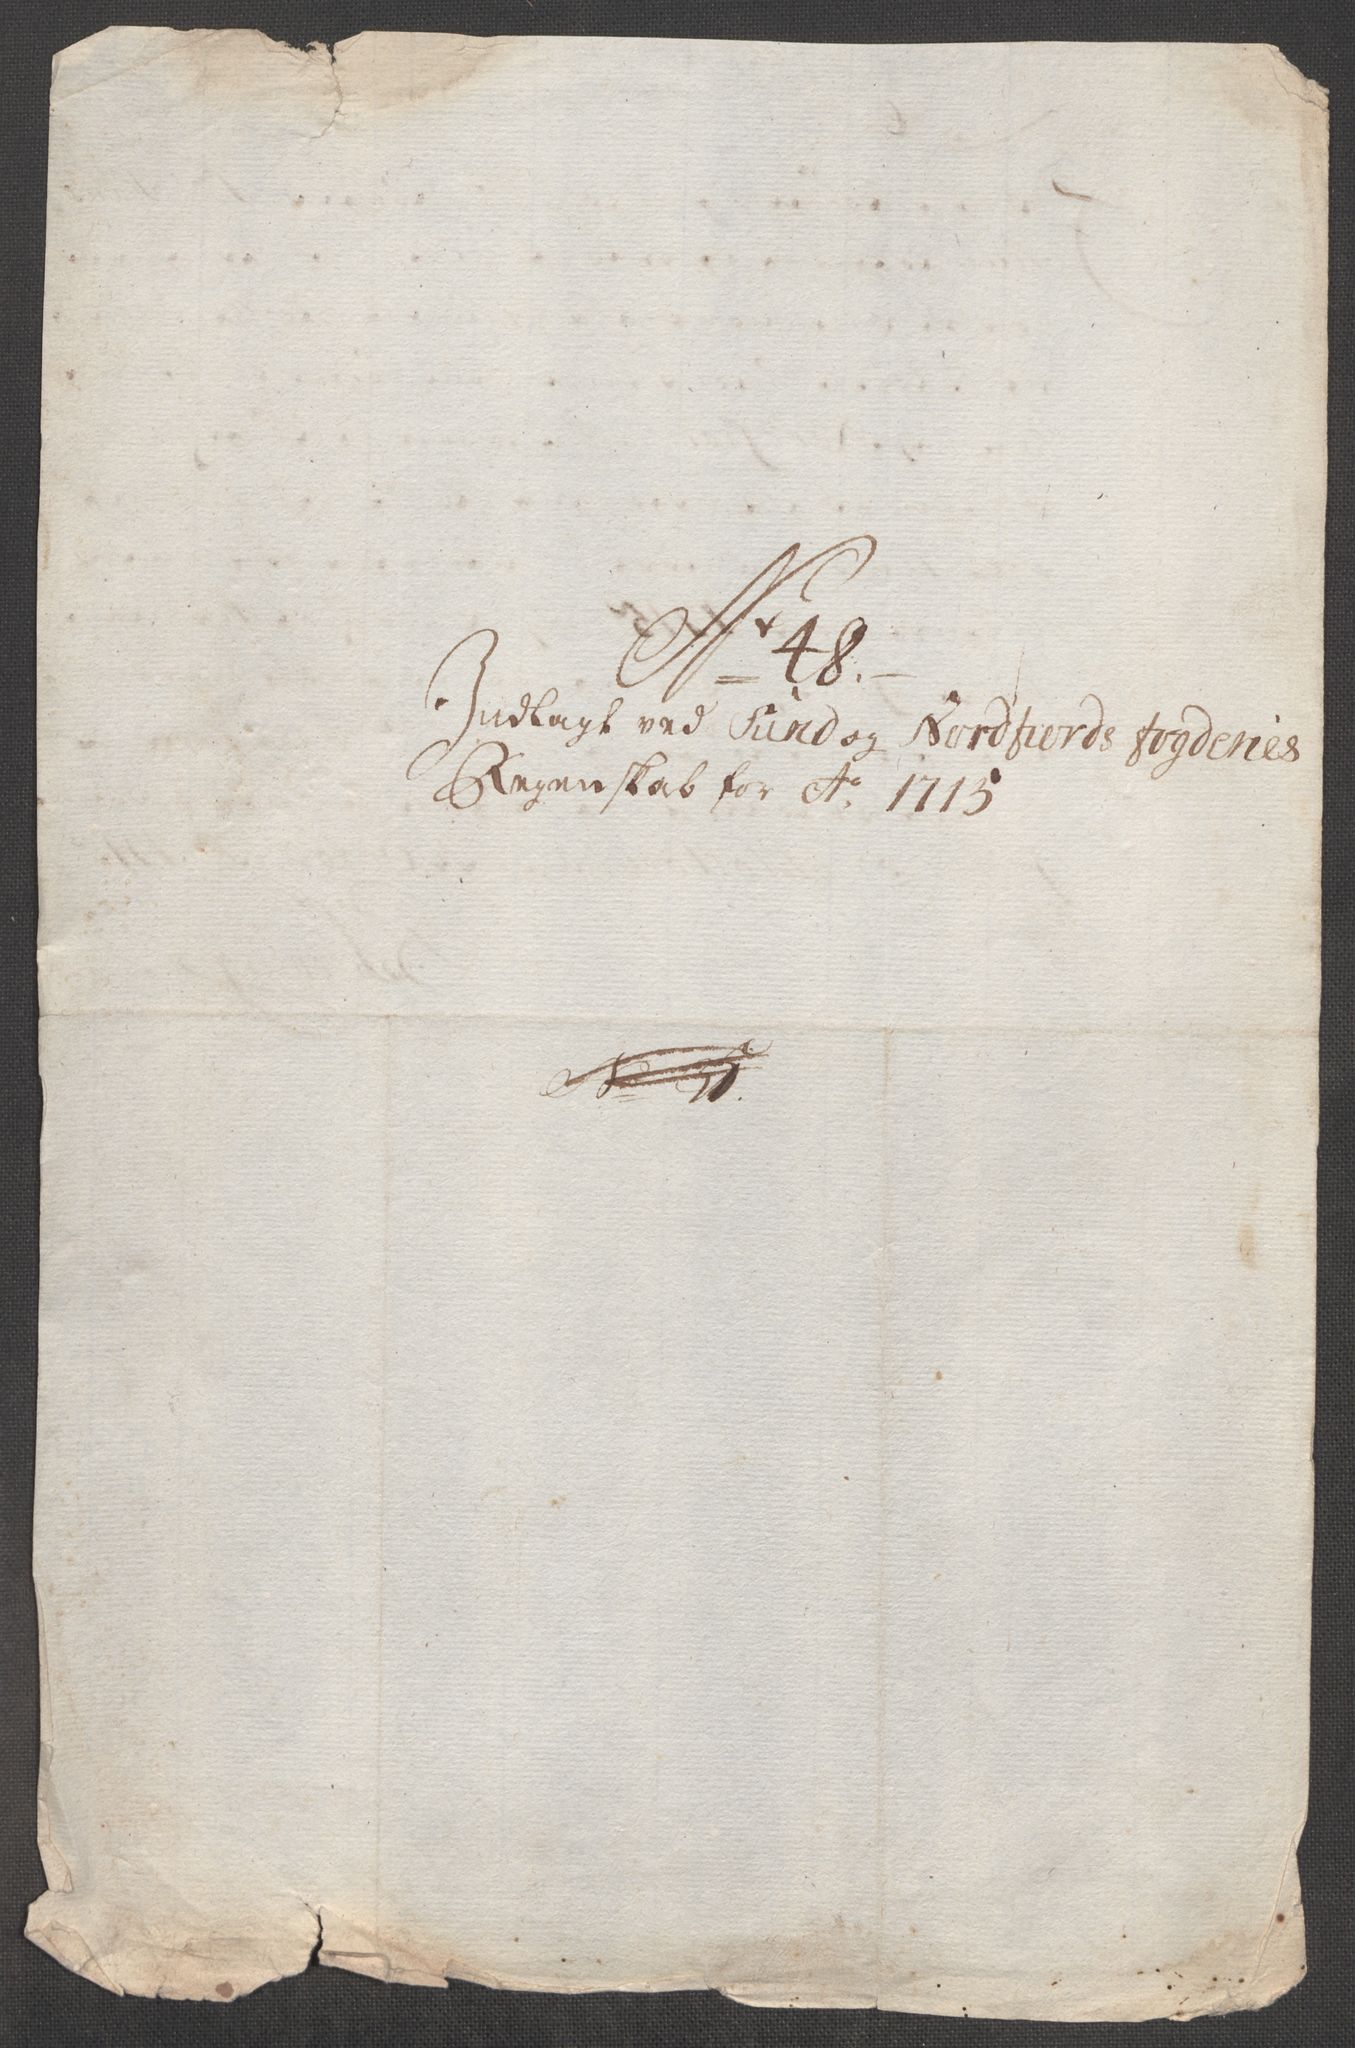 Nr 48.
Indlagt ved Sünd og Nordfiords fogderies
Regenskab for Ao. 1715
No